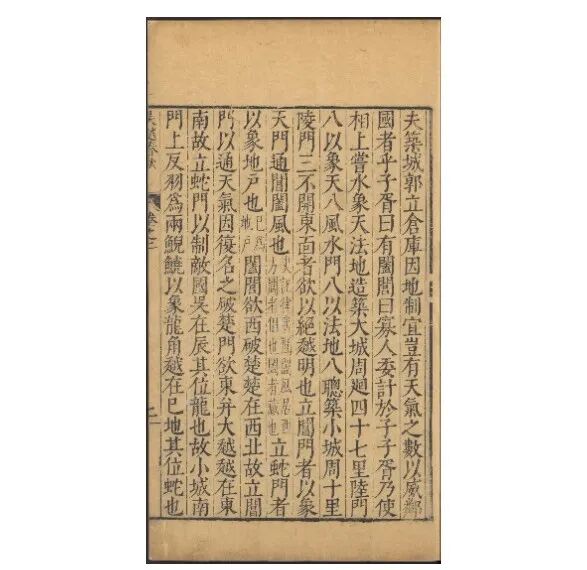 夫築城郭立倉庫因地制宜豈有天氣之數以威鄰
國者乎子胥曰有闔閭曰寡人委計於子子胥乃使
相土嘗水象天法地造築大城周迴四十七里陸門
八以象天八風水門八以法地八聰築小城周十里
陵門三不開東面者欲以絕越明也立閶門者以象
天門通閶闔風也史記律書閶闔風居西方閶者倡也闔者藏也立蛇門者
以象地戶也巳為地戶闔閭欲西破楚楚在西北故立閶
門以通天氣因復名之破楚門欲東并大越越在東
南故立蛇門以制敵國吳在辰其位龍也故小城南
門上反羽為兩鯢鱙以象龍角越在巳地其位蛇也